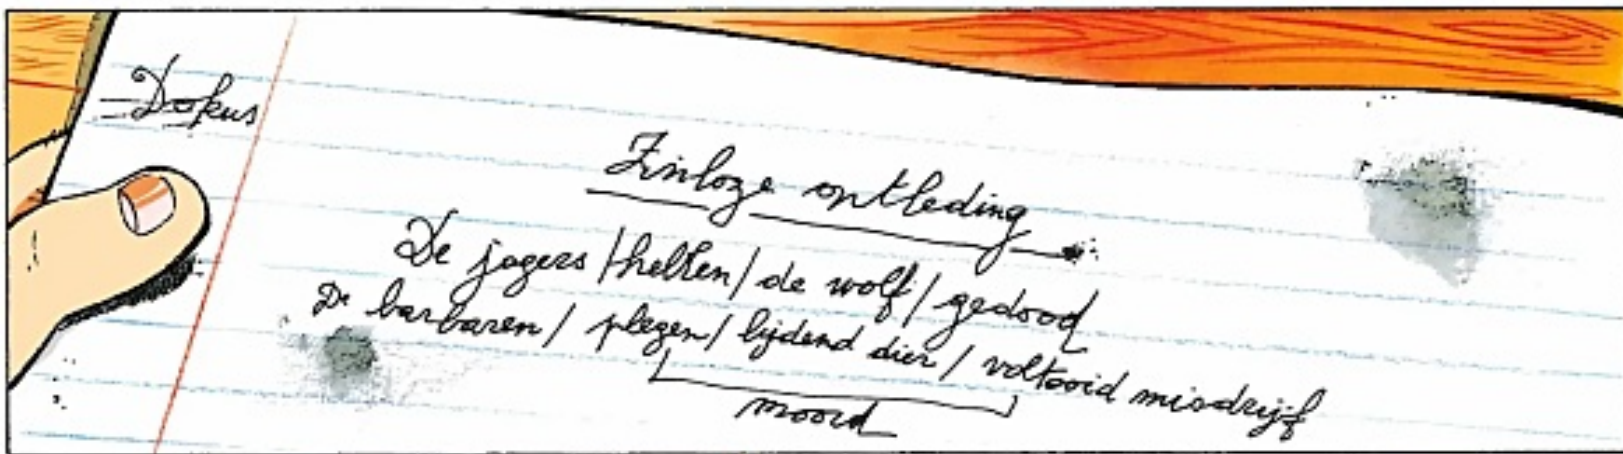 Dokus
Zinloze ontleding
De jagers / hebben / de wolf / gedood
De barbaren / plegen / lijdend dier / voltooid misdrijf
moord